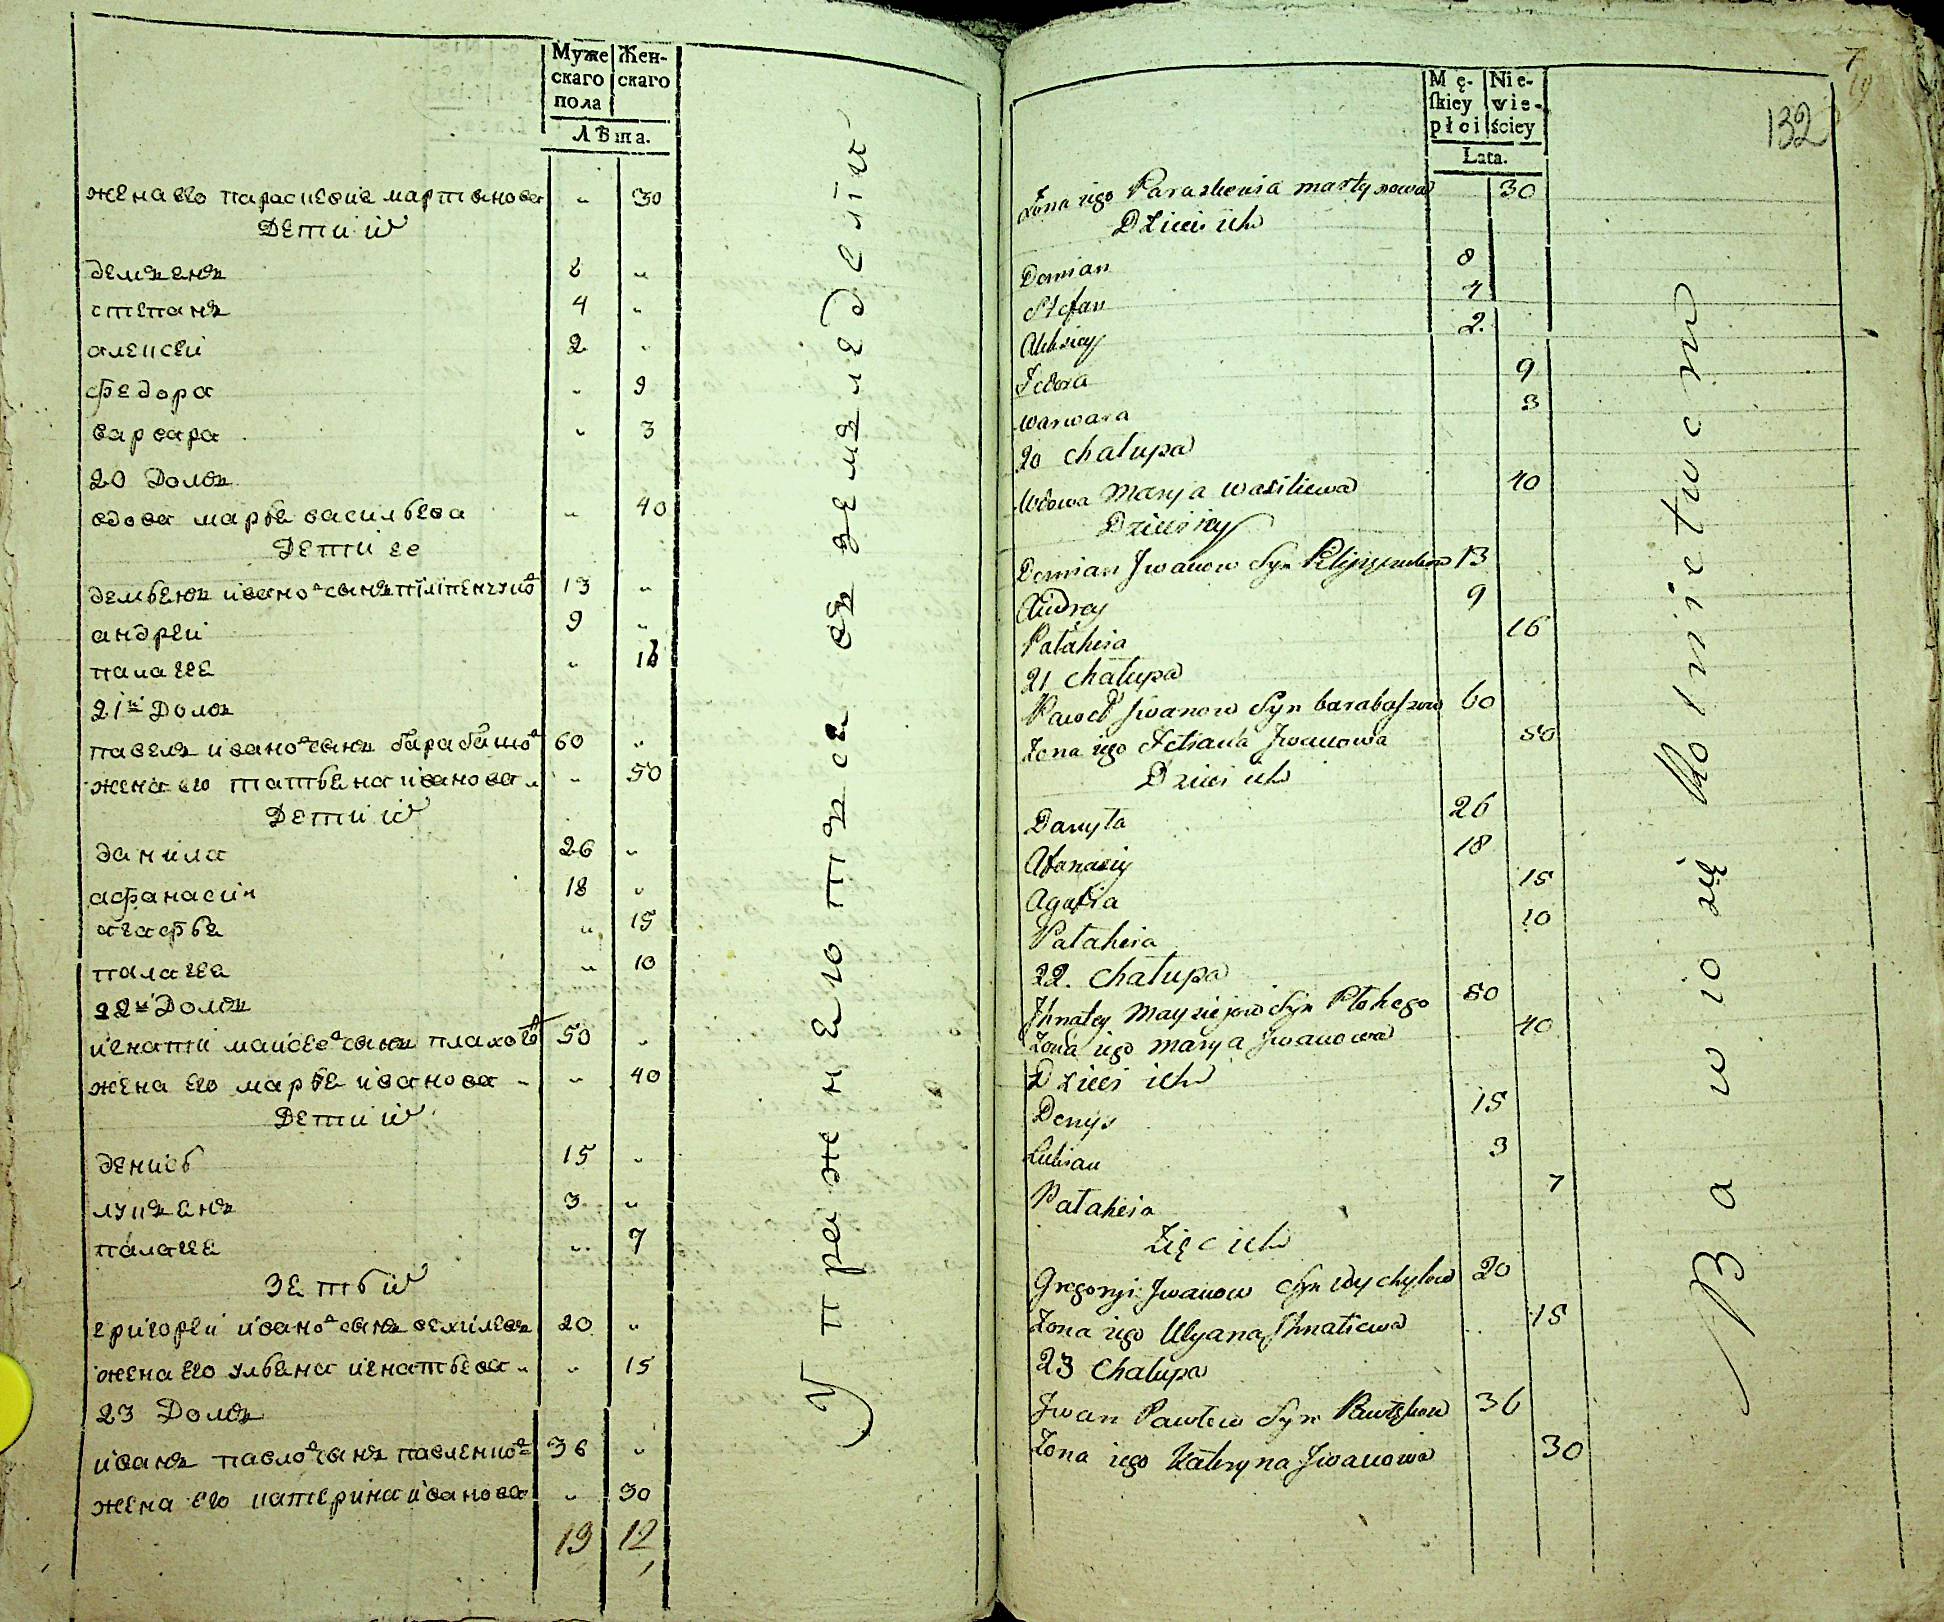 Муже Жен-
скаго скаго
пола
Лѣта.
жена его параскевие мартынова „ 30
Дети их
демьянъ 8 „
степанъ 4 „
алексей 2 „
федора „ 9
варвара „ 3
20 Домъ
вдова марья васильева „ 40
Дети ее
демьянъ ивановъ сынъ пилипенчуков 13 „
андрей 9 „
палагея „ 16
21й Домъ
павелъ ивановъ сынъ барабашов 60 „
жена его татьяна иванова „ 50
Дети их
данила 26 „
афанасий 18 „
агафья „ 15
палагея „ 10
22й Домъ
игнатий майсеевъ сынъ плахов 50 „
жена его марья иванова „ 40
Дети их
денисъ 15 „
лукьянъ 3 „
палагея „ 7
Зять их
григорей ивановъ сынъ 20 „
жена его ульяна игнатьева „ 15
23 Домъ
иванъ павловъ сынъ павленков 36 „
жена его катерина иванова „ 30
13 12
Упражнеютца въ земледелии
7
132
Mę- Nie-
skiey wie-
płci ściey
Lata.
Żona iego Paraskewia martynowa 30
Dzieci ich
Demian 8
Stefan 4
Alexiey 2.
Fedora 9
warwara 3
20 chałupa
Wdowa Marya wasiliewa 40
Dzieci iey
Demian Jwanow Syn 13
Andrey 9
Pałaheia 16
21 chałupa
Paweł Jwanow Syn barabaszow 60
Żona iego Tetiana Jwanowa 50
Dzieci ich
Danyła 26
Afanasiy 18
Agafia 15
Pałaheia 10
22. chałupa
Jhnatey Mayziejow Syn Płohego 50
Żona iego Marya Jwanowa 40
Dzieci ich
Denys 15
Lukian 3
Pałaheia 7
Zięć ich
Gregoryi Jwanow Syn Wychylow 20
Żona iego Ulyana Jhnatiewa 15
23 Chałupa
Jwan Pawłow Syn 36
Żona iego Kateryna Jwanowa 30
Bawio się Rolnictwem